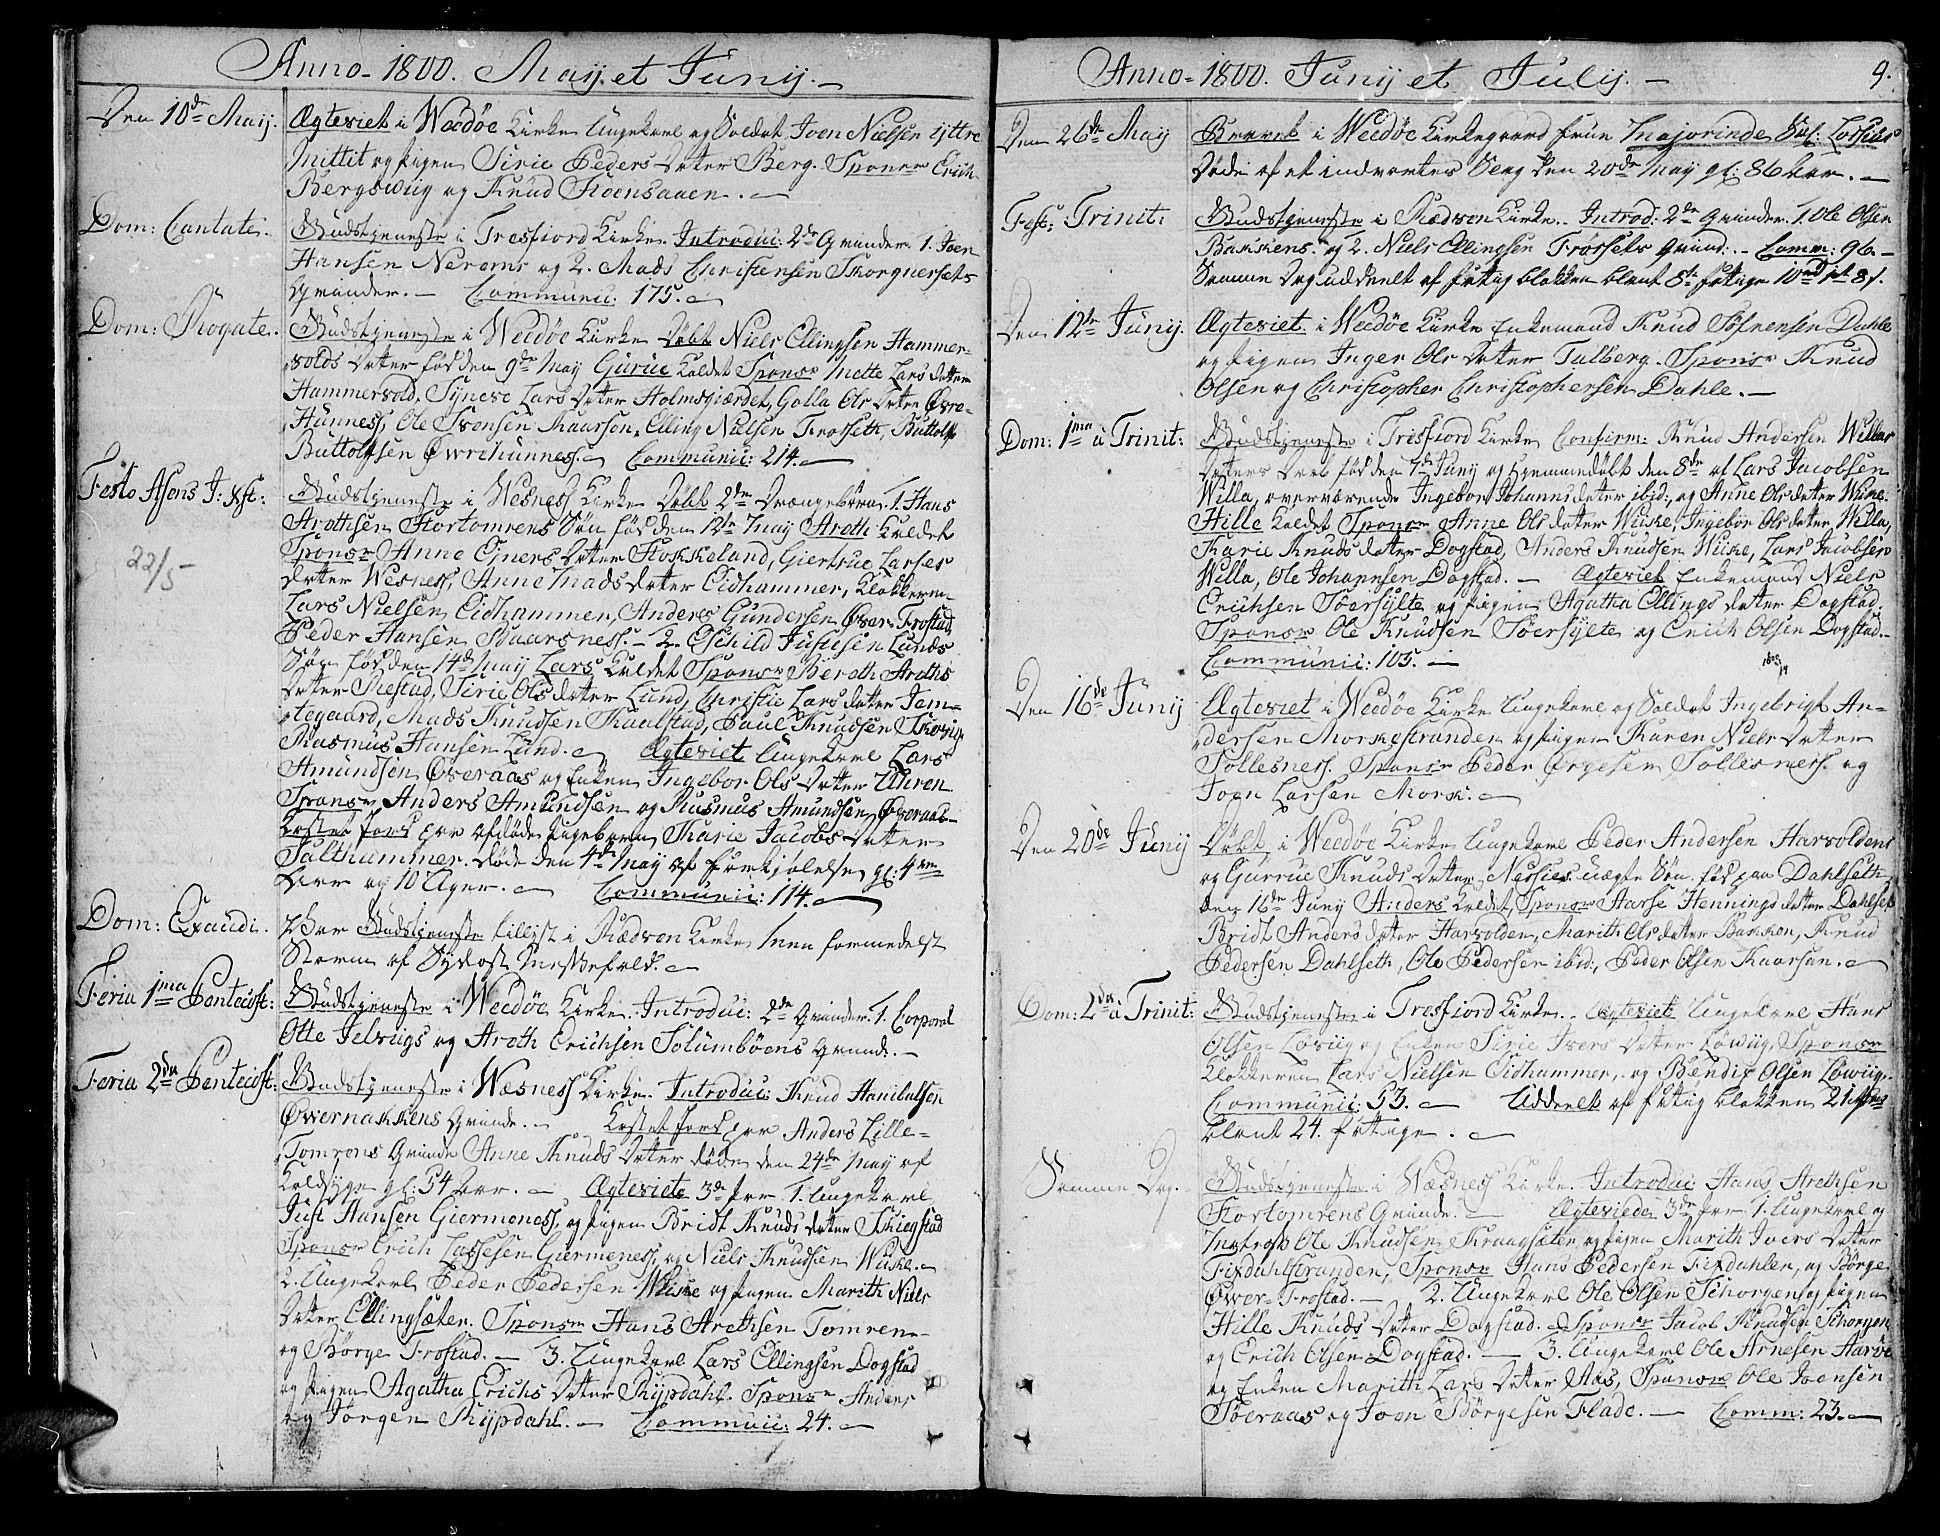 Anno 1800. Maij et Junij.
Den 10de Maij.
Ægteviet i Weedøe Kirke Ungekarl og Soldat Joen Nielsen yttre
Mittit og Pigen Sirie Peders Datter Berg. Sponsr Erich
Bergswiig og Knud Stoensaaen.
Dom: Cantate.
Gudstjeneste i Tresfiord Kirke. Introduc: 2de Qvinder. 1. Joen
Hansen Nerems og 2. Mads Christensen Skorgnersæts
Qvinder. Communic: 175.
Dom: Rogate.
Gudstjeneste i Weedøe Kirke Døbt Niels Ellingsen Hammer-
volds Datter fød den 9de May Gurue kaldet Sponsr Mette Lars datter
Hammervold, Syneve Lars Datter Holmsgierdet, Golla Ols Datter Øvre-
Hunness, Ole Svensen Kaarsen, Elling Nielsen Frosseth, Buttolf
Buttolfsen Øvrehunness. Communic: 214.
Festo Asens J: Xst:
22/5
Gudstjeneste i Wesness Kirke Døbt 2de Drængebørn. 1. Hans
Arethsen Stortomrens Søn fød den 12te May Areth kaldet
Sponsr Anne Ejners Datter Stokkeland, Giertrue Larses
datter Wesness, Anne Mads datter Eidhammer, Klokkeren
Lars Nielsen Eidhammer, Anders Gundersen Øver-Frostad
Peder Hansen Skaarsness. 2. Eschild Justesen Lunds
Søn fød den 14de May Lars kaldet Sponsr Bereth Areths
Datter Restad, Sirie Ols datter Lund, Christie Lars datter Jem-
tegaard, Mads Knudsen Kaalstad, Paul Knudsen
Rasmus Hansen Lund. Ægteviet Ungekarl Lars
Amundsen Øveraas og Enken Ingebor Ols Datter Uhren
Sponsr Anders Amundsen og Rasmus Amundsen Øveraas
Kastet Jord paa afdøde Pigebarn Marie Jacobs Datter
Salthammer døde den 4de May af Forkjølelse gl: 4re
Aar og 10 Uger. Communic: 114.
Dom: Exaudi.
Var Gudstjeneste tillyst i Rødven Kirke men formedelst
Storm af Sydost Messefald.
Feria 1ma Pentecost:
Gudstjeneste i Weedøe Kirke. Introduc: 2de Qvinder. 1. Corporal
Otte Jelvigs og Areth Erichsen Solumbøens Qvinde.
Feria 2da Pentecost:
Gudstjeneste i Wæsness Kirke. Introduc: Knud Hanibalsen
Øvernakkens Qvinde. Kastet Jord paa Anders Lille-
Tomrens Qvinde Anne Knuds Datter døde den 24de May af
Koldsyge gl: 54 Aar. Ægteviete 3de Par 1. Ungekarl
Just Hansen Giermeness, og Pigen Bridt Knuds datter Skiegstad
Sponsr Erich Lassesen Giermeness, og Niels Knudsen Wiike.
2. Ungekarl Peder Pedersen Wiike og Pigen Marith Niels
Datter Ellingsæter. Sponsr Hans Arethsen Tomren
og Børge Frostad. 3. Ungekarl Lars Ellingsen Dogstad
og Pigen Agatha Erichs Datter Rypdahl. Sponsr Anders
og Jørgen Rypdahl. Communic: 24.
Anno 1800. Junij et Julij.
9.
Den 26de May
Begravet i Weedøe Kirkegaard Frue Majorinde Sal: Lossius
Døde af et indvortes Saag den 20de May gl: 86 Aar.
Fest: Trinit:
Gudstjeneste i Rødven Kirke. Introd: 2de Qvinder. 1. Ole Olsen
Bakkens. og 2. Niels Ellingsen Frossets Qvind. Comm: 96.
Samme Dag uddeelt af Fattig blokken blant 8te Fattige 10
Den 12te Junij.
Ægteviet i Weedøe Kirke Enkemand Knud Sørensen Dahle
og Pigen Inger Ols Datter Talberg. Sponsr Knud
Olsen og Christopher Christophersen Dahle.
Dom: 1ma à Trinit:
Gudstjeneste i Tresfiord Kirke Confirm: Knud Andersen Willas
Datters Daab fød den 7de Juny og hjemmedøbt den 8de af Lars Jacobsen
Willa, overværende Ingebor Johanns datter ibid:, og Anne Ols datter Wiike.
Hille kaldet Sponsr Anne Ols datter Wiike, Ingebor Ols datter Willa,
Karie Knuds datter Dogstad, Anders Knudsen Wiike, Lars Jacobsen
Willa, Ole Johannsen Dogstad. Ægteviet Enkemand Niels
Erichsen Søersylte og Pigen Agatha Ellings datter Dogstad.
Sponsr Ole Knudsen Søersylte og Erich Olsen Dogstad.
Communic: 105.
Den 16de Junij
Ægteviet i Weedøe Kirke Ungekarl og Soldat Ingebrigt An-
dersen Morkestranden og Pigen Karen Niels Datter
Sollesness. Sponsr Peder Ørgesen Sollesness og
Joen Larsen Mork.
Den 20de Junij
Døbt i Weedøe Kirke Ungekarl Peder Andersen Harvoldens
og Gurrue Knuds Datter Nessies uægte Søn fød paa Dahlseth
den 16de Juny Anders kaldet, Sponsr Aarse Hennings datter Dahlset
Bridt Anders datter Harvolden, Marith Ols datter Bakken, Knud
Pedersen Dahlseth, Ole Pedersen ibid:, Peder Olsen Kaarsen.
Dom: 2da à Trinit:
Gudstjeneste i Tresfiord Kirke. Ægteviet Ungekarl Hans
Olsen Løviig og Enken Sirie Ivers Datter Løwiig, Sponsr
Klokkeren Lars Nielsen Eidhammer, og Bendix Olsen Løwiig.
Communic: 53. Uddeelt af Fattig blokken 21
blant 24. Fattige.
Samme Dag.
Gudstjeneste i Wæsness Kirke. Introduc Hans Arethsen
Stortomrens Qvinde. Ægteviede 3de Par 1. Ungekarl og
Matros Ole Knudsen Kraagsæter og Pigen Marith Ivers Datter
Fixdahlstranden, Sponsr Hans Pedersen Fixdahlen, og Børge
Øver-Frostad. 2. Ungekarl Ole Olsen Schorgen og Pigen
Hille Knuds Datter Dogstad. Sponsr Jacob Knudsen Schorgen
og Erich Olsen Dogstad. 3. Ungekarl Ole Arnesen Aarøe
og Enken Marith Lars Datter Aas, Sponsr Ole Joensen
Søeraas og Joen Børgesen Flade. Comm: 23.